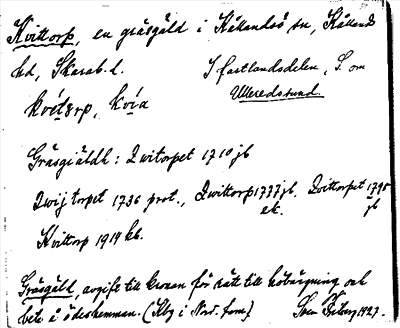 Kvittorp, en gräsgäld i Kållandsö sn, Kålland
hd, Skarab. l. I fastlandsdelen, S. om
Ulleredssund.
Gräsgiäldh: Qwitorpet 1710 jb
Qwij torpet 1736 prot., Qwittorp 1777 jb. Qvittorpet 1795
ek. jb
Kvittorp 1914 kb.
Gräsgäld, avgift till kronan för rätt till höbärgning och
bete å ödeshemman. (Kbg i Nord. fam.)